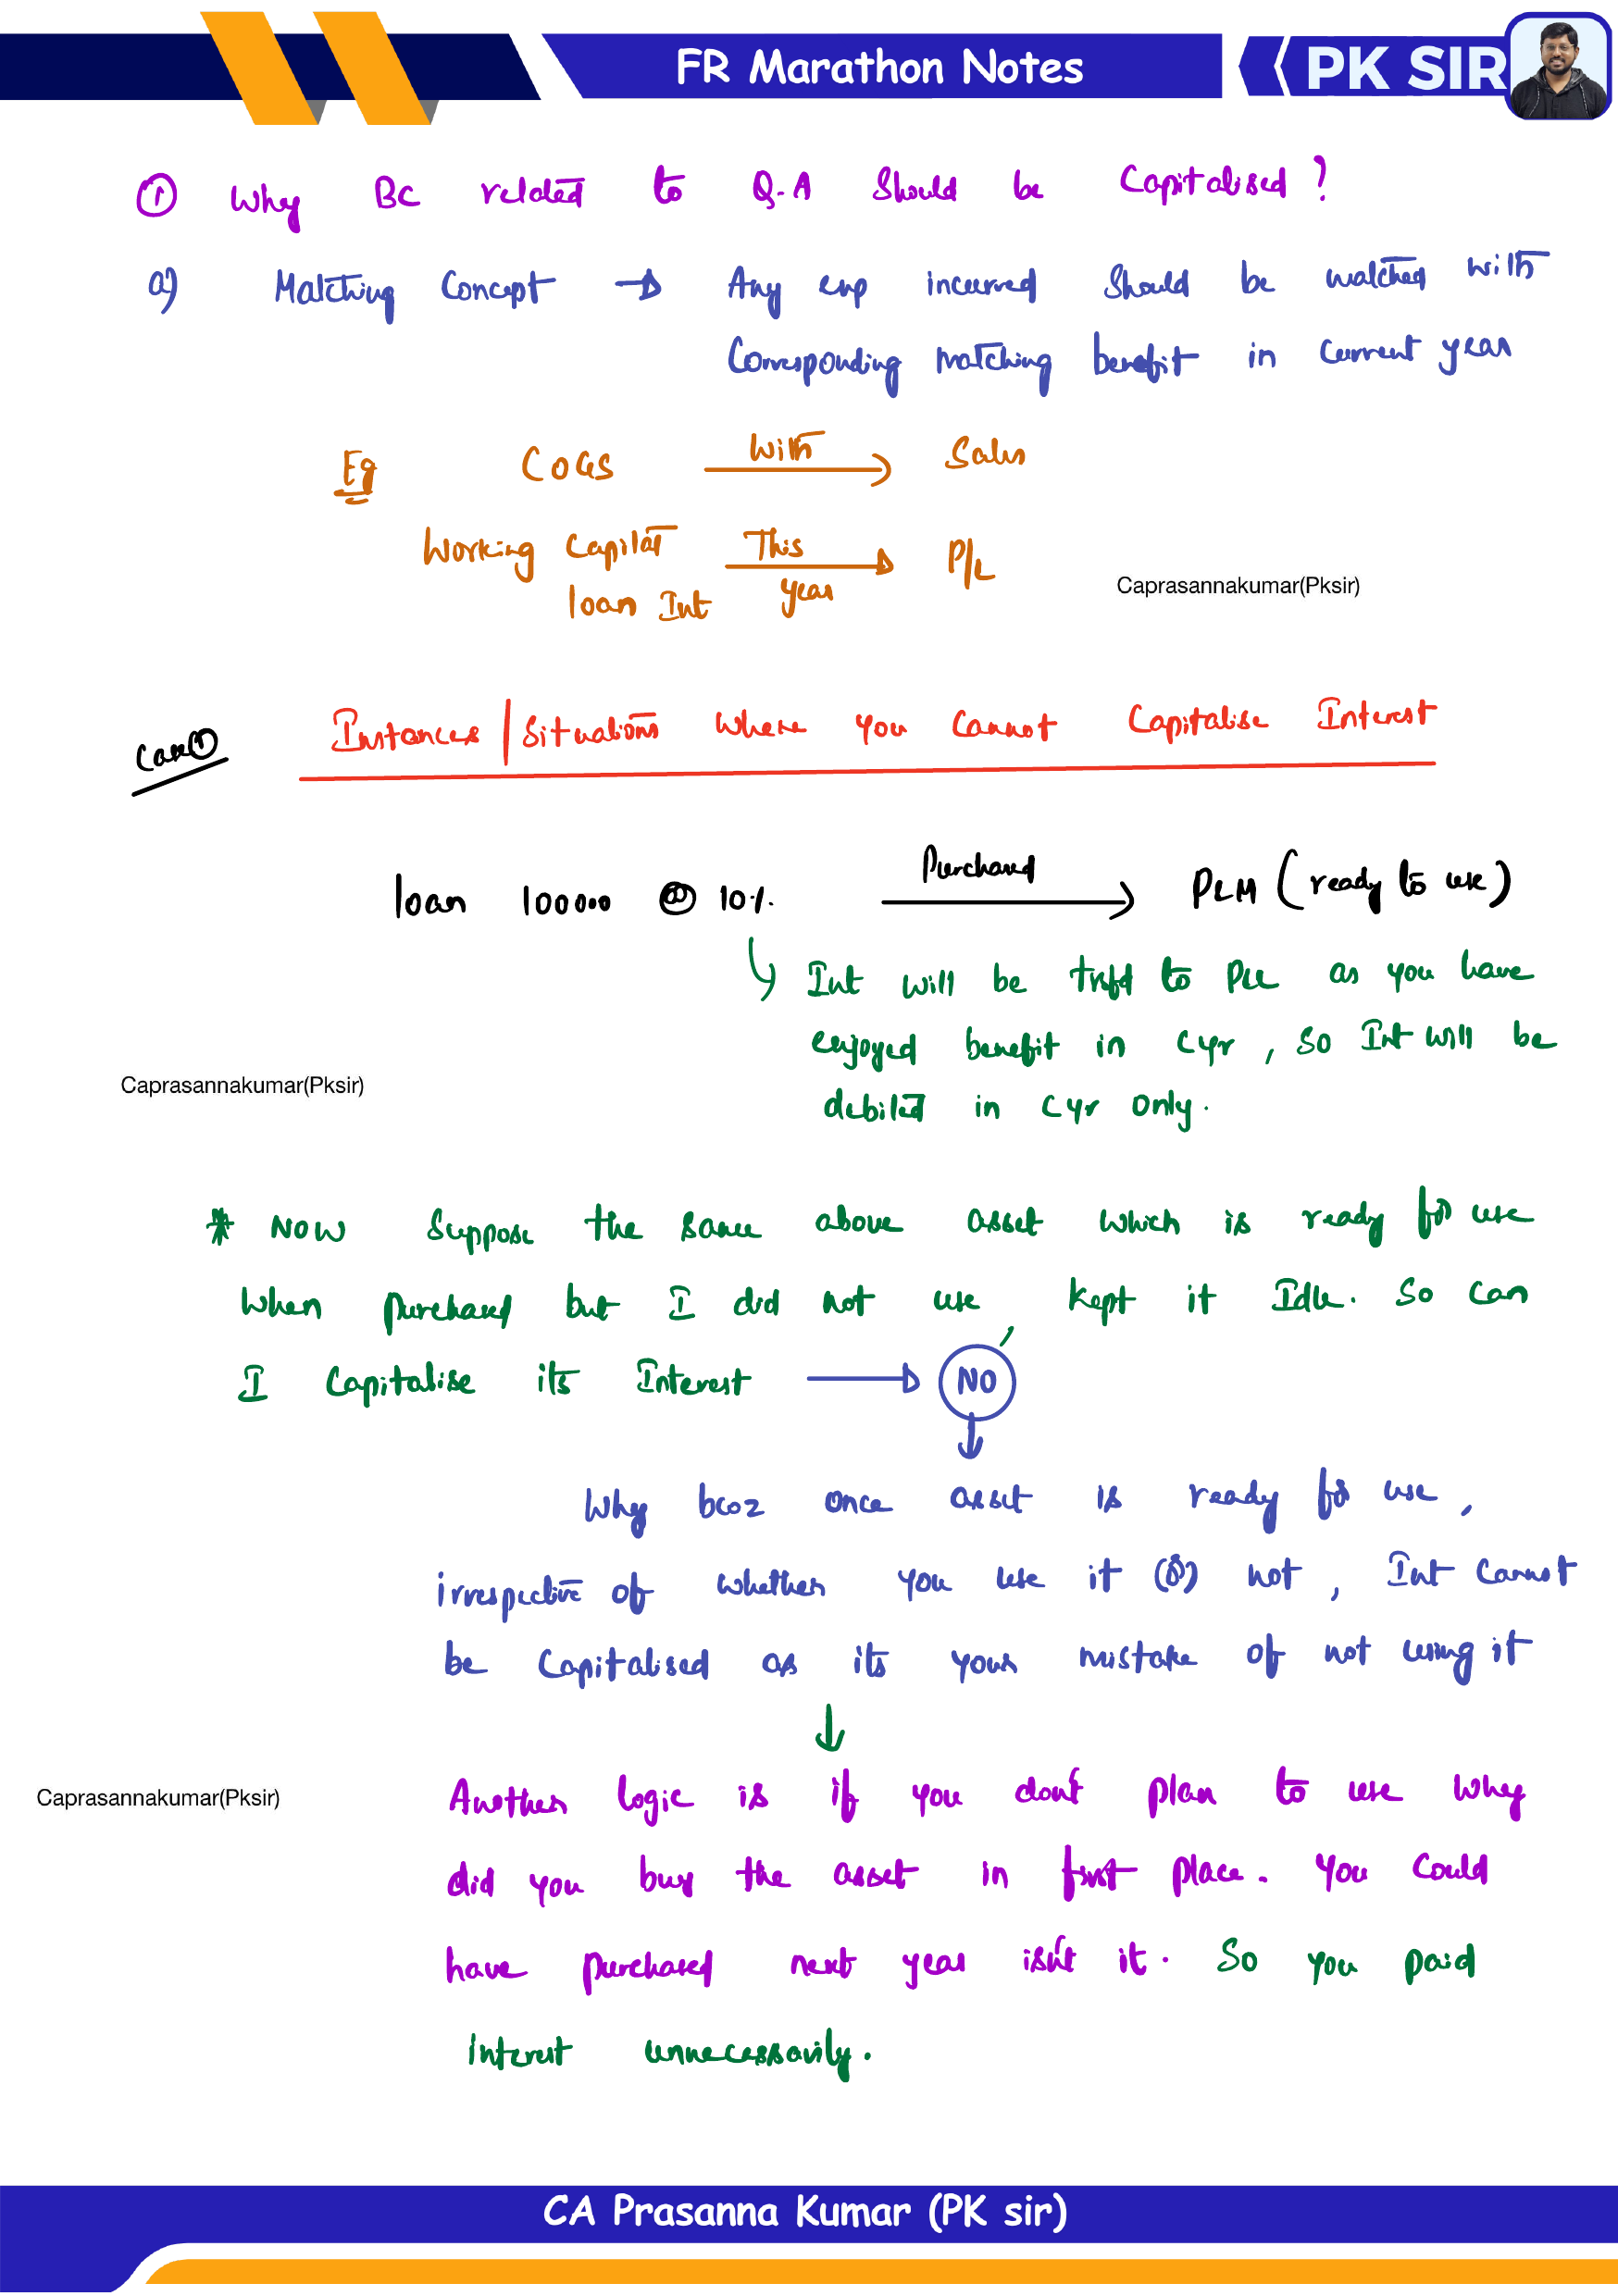 FR Marathon Notes
PK SIR
① Why BC related to Q.A Should be Capitalised?
a) Matching Concept → Any exp incurred should be matched with
Corresponding matching benefit in current year
Eg COGS With → Sales
Working Capital loan Int This year → P/L
Caprasannakumar(Pksir)
Case① Instances/Situations Where you Cannot Capitalise Interest
loan 100000 @ 10%. Purchased → P&M (ready to use)
Int will be trfd to P&L as you have
enjoyed benefit in Cyr, So Int will be
debited in Cyr only.
Caprasannakumar(Pksir)
* Now Suppose the same above asset which is ready for use
When purchased but I did not use kept it Idle. So can
I Capitalise its Interest → NO
Why bcoz once asset is ready for use,
irrespective of whether you use it (or) not, Int Cannot
be Capitalised as its your mistake of not using it
Caprasannakumar(Pksir)
Another logic is if you don't plan to use why
did you buy the asset in first place. You Could
have purchased next year isn't it. So you paid
interest unnecessarily.
CA Prasanna Kumar (PK sir)